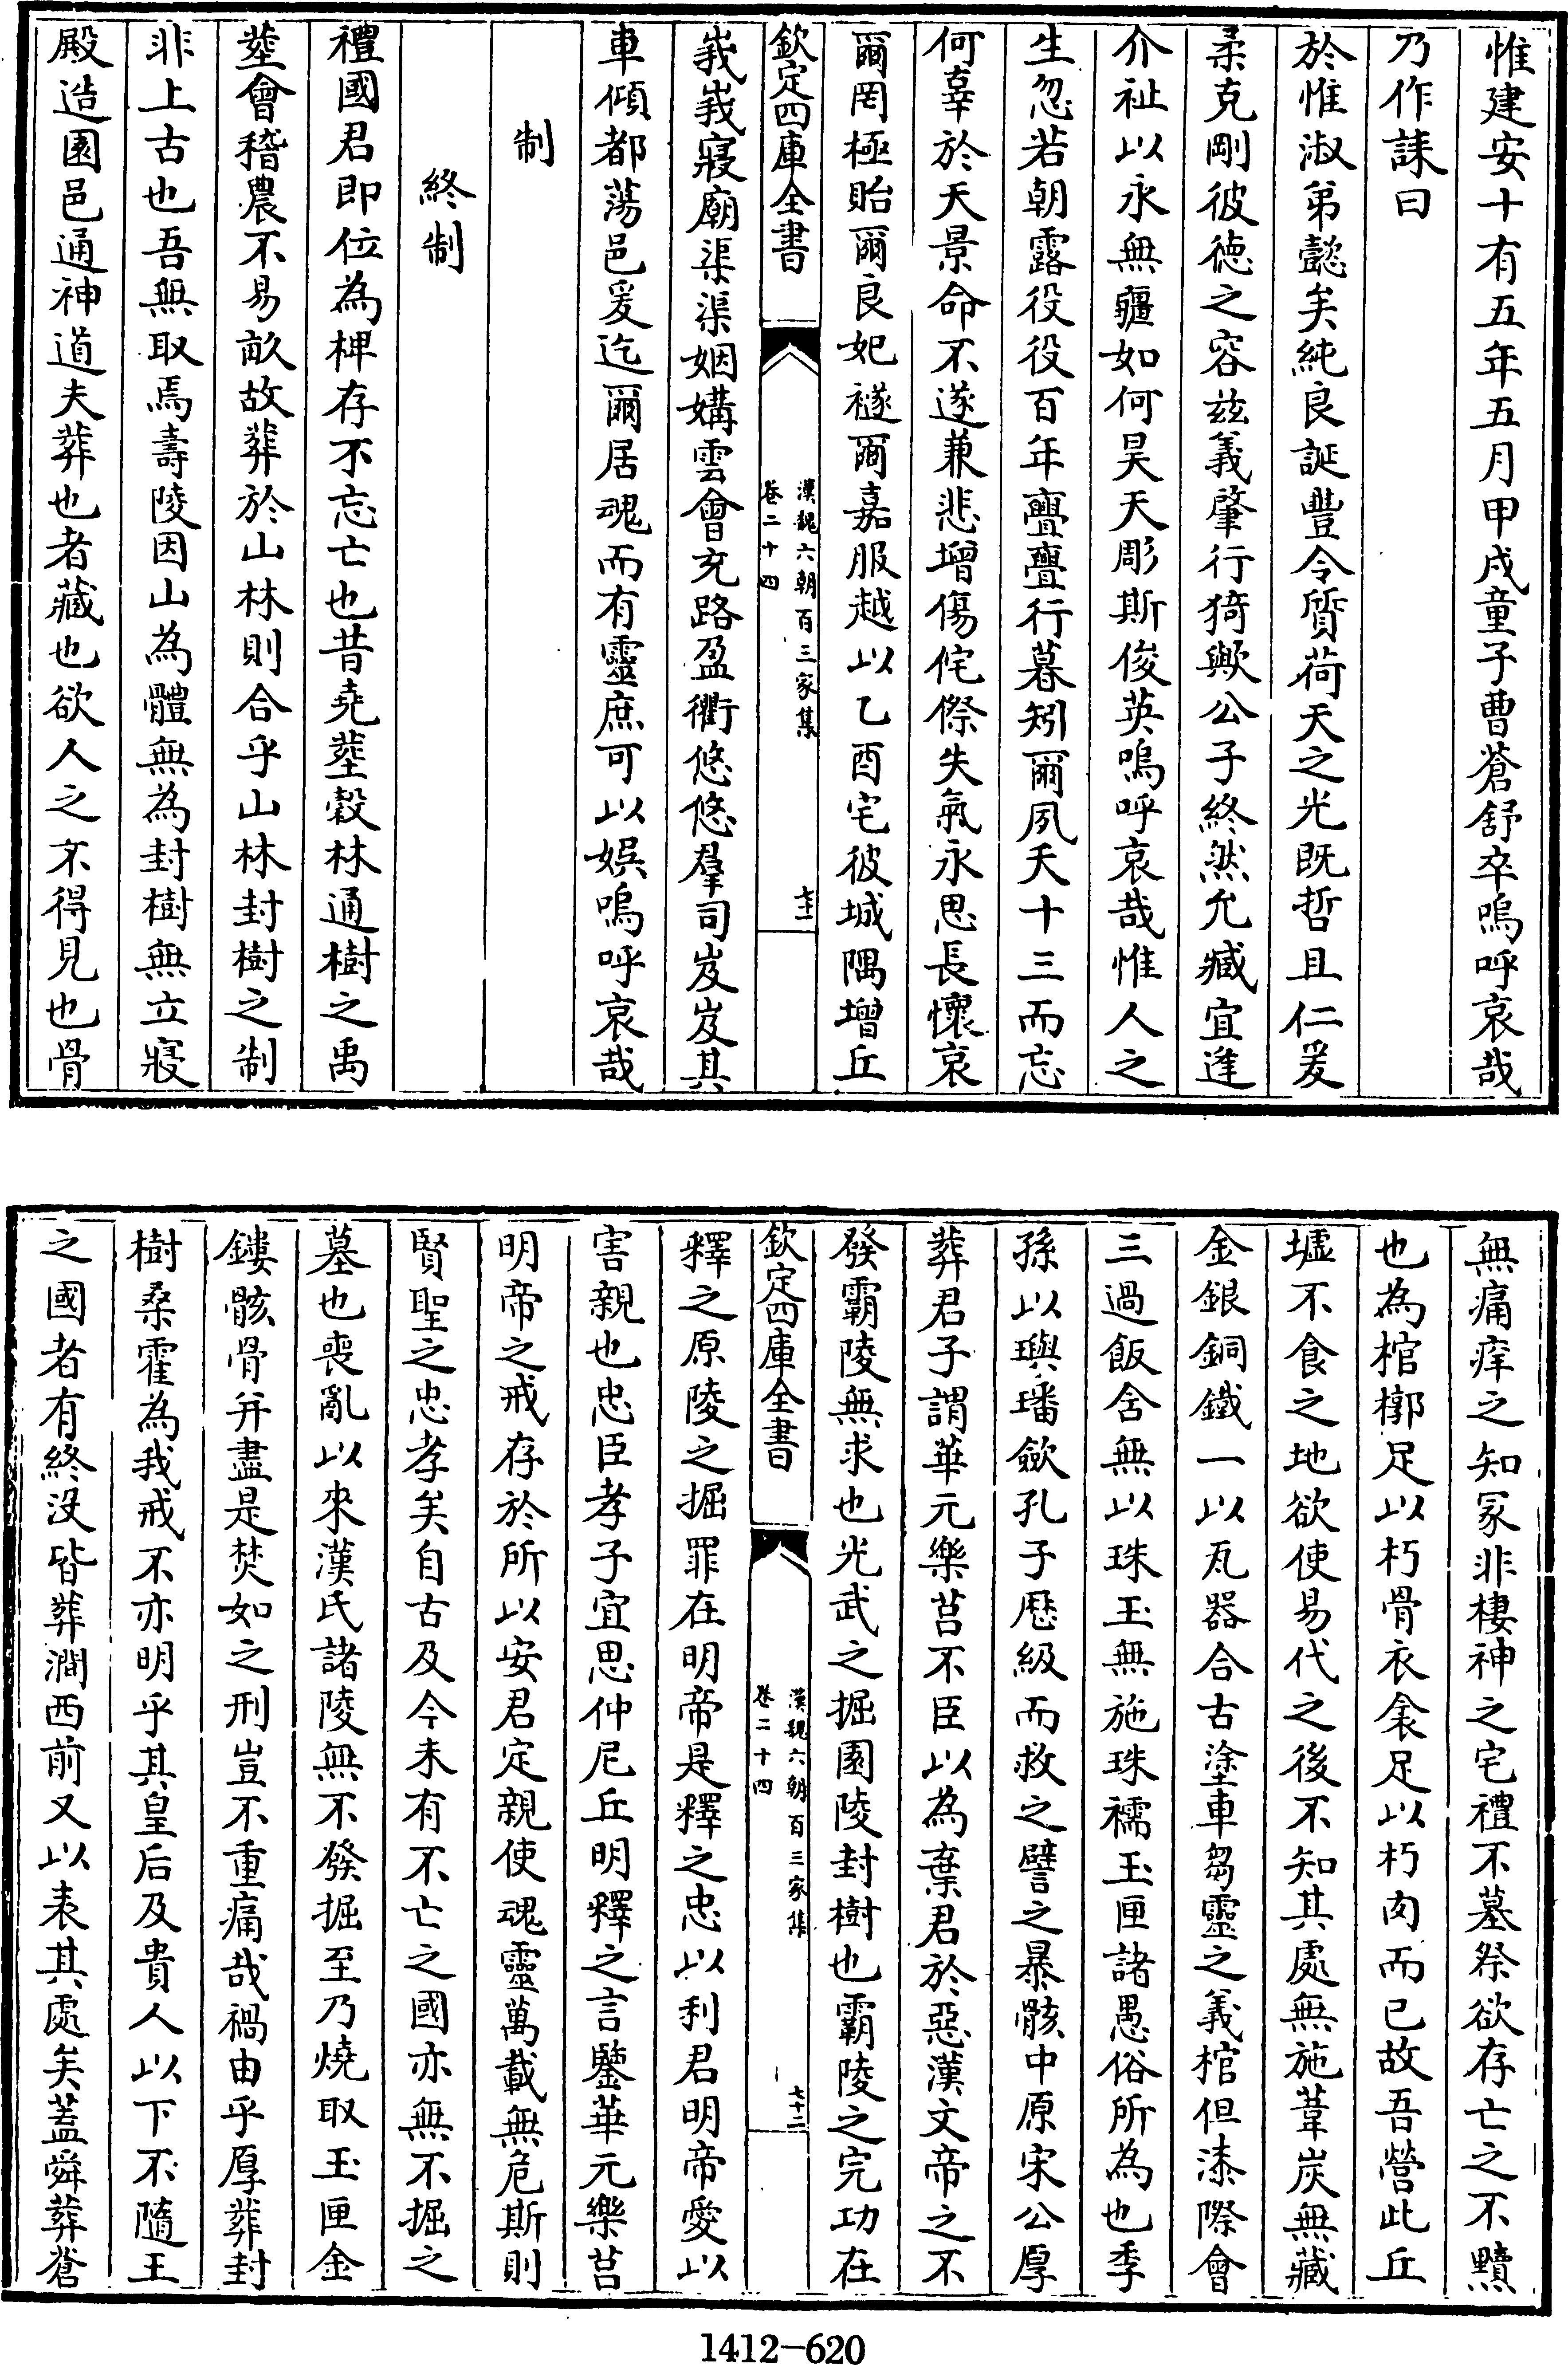 惟建安十有五年五月甲戌童子曹蒼舒卒嗚呼哀哉
乃作誄曰
於惟淑弟懿矣純良誕豐令質荷天之光既哲且仁爰
柔克剛彼德之容茲義肇行猗歟公子終然允臧宜逢
介祉以永無疆如何昊天彫斯俊英嗚呼哀哉惟人之
生忽若朝露役役百年亹亹行暮矧爾夙夭十三而忘
何辜於天景命不遂兼悲增傷侘傺失氣永思長懷哀
爾罔極貽爾良妃襚爾嘉服越以乙酉宅彼城隅增丘
欽定四庫全書
漢魏六朝百三家集
卷二十四
七十一
峩峩寢廟渠渠姻媾雲會充路盈衢悠悠羣司岌岌其
車傾都蕩邑爰迄爾居魂而有靈庶可以娛嗚呼哀哉
制
終制
禮國君即位為椑存不忘亡也昔堯塟穀林通樹之禹
塟會稽農不易畝故葬於山林則合乎山林封樹之制
非上古也吾無取焉壽陵因山為體無為封樹無立寢
殿造園邑通神道夫葬也者藏也欲人之不得見也骨
無痛痒之知冢非棲神之宅禮不墓祭欲存亡之不黷
也為棺槨足以朽骨衣衾足以朽肉而已故吾營此丘
墟不食之地欲使易代之後不知其處無施葦炭無藏
金銀銅鐵一以瓦器合古塗車芻靈之義棺但漆際會
三過飯含無以珠玉無施珠襦玉匣諸愚俗所為也季
孫以璵璠斂孔子歷級而救之譬之暴骸中原宋公厚
葬君子謂華元樂莒不臣以為棄君於惡漢文帝之不
發霸陵無求也光武之掘園陵封樹也霸陵之完功在
欽定四庫全書
漢魏六朝百三家集
卷二十四
七十二
釋之原陵之掘罪在明帝是釋之忠以利君明帝愛以
害親也忠臣孝子宜思仲尼丘明釋之之言鑒華元樂莒
明帝之戒存於所以安君定親使魂靈萬載無危斯則
賢聖之忠孝矣自古及今未有不亡之國亦無不掘之
墓也喪亂以來漢氏諸陵無不發掘至乃燒取玉匣金
鏤骸骨并盡是焚如之刑豈不重痛哉禍由乎厚葬封
樹桑霍為我戒不亦明乎其皇后及貴人以下不隨王
之國者有終沒皆葬澗西前又以表其處矣蓋舜葬蒼
1412-620